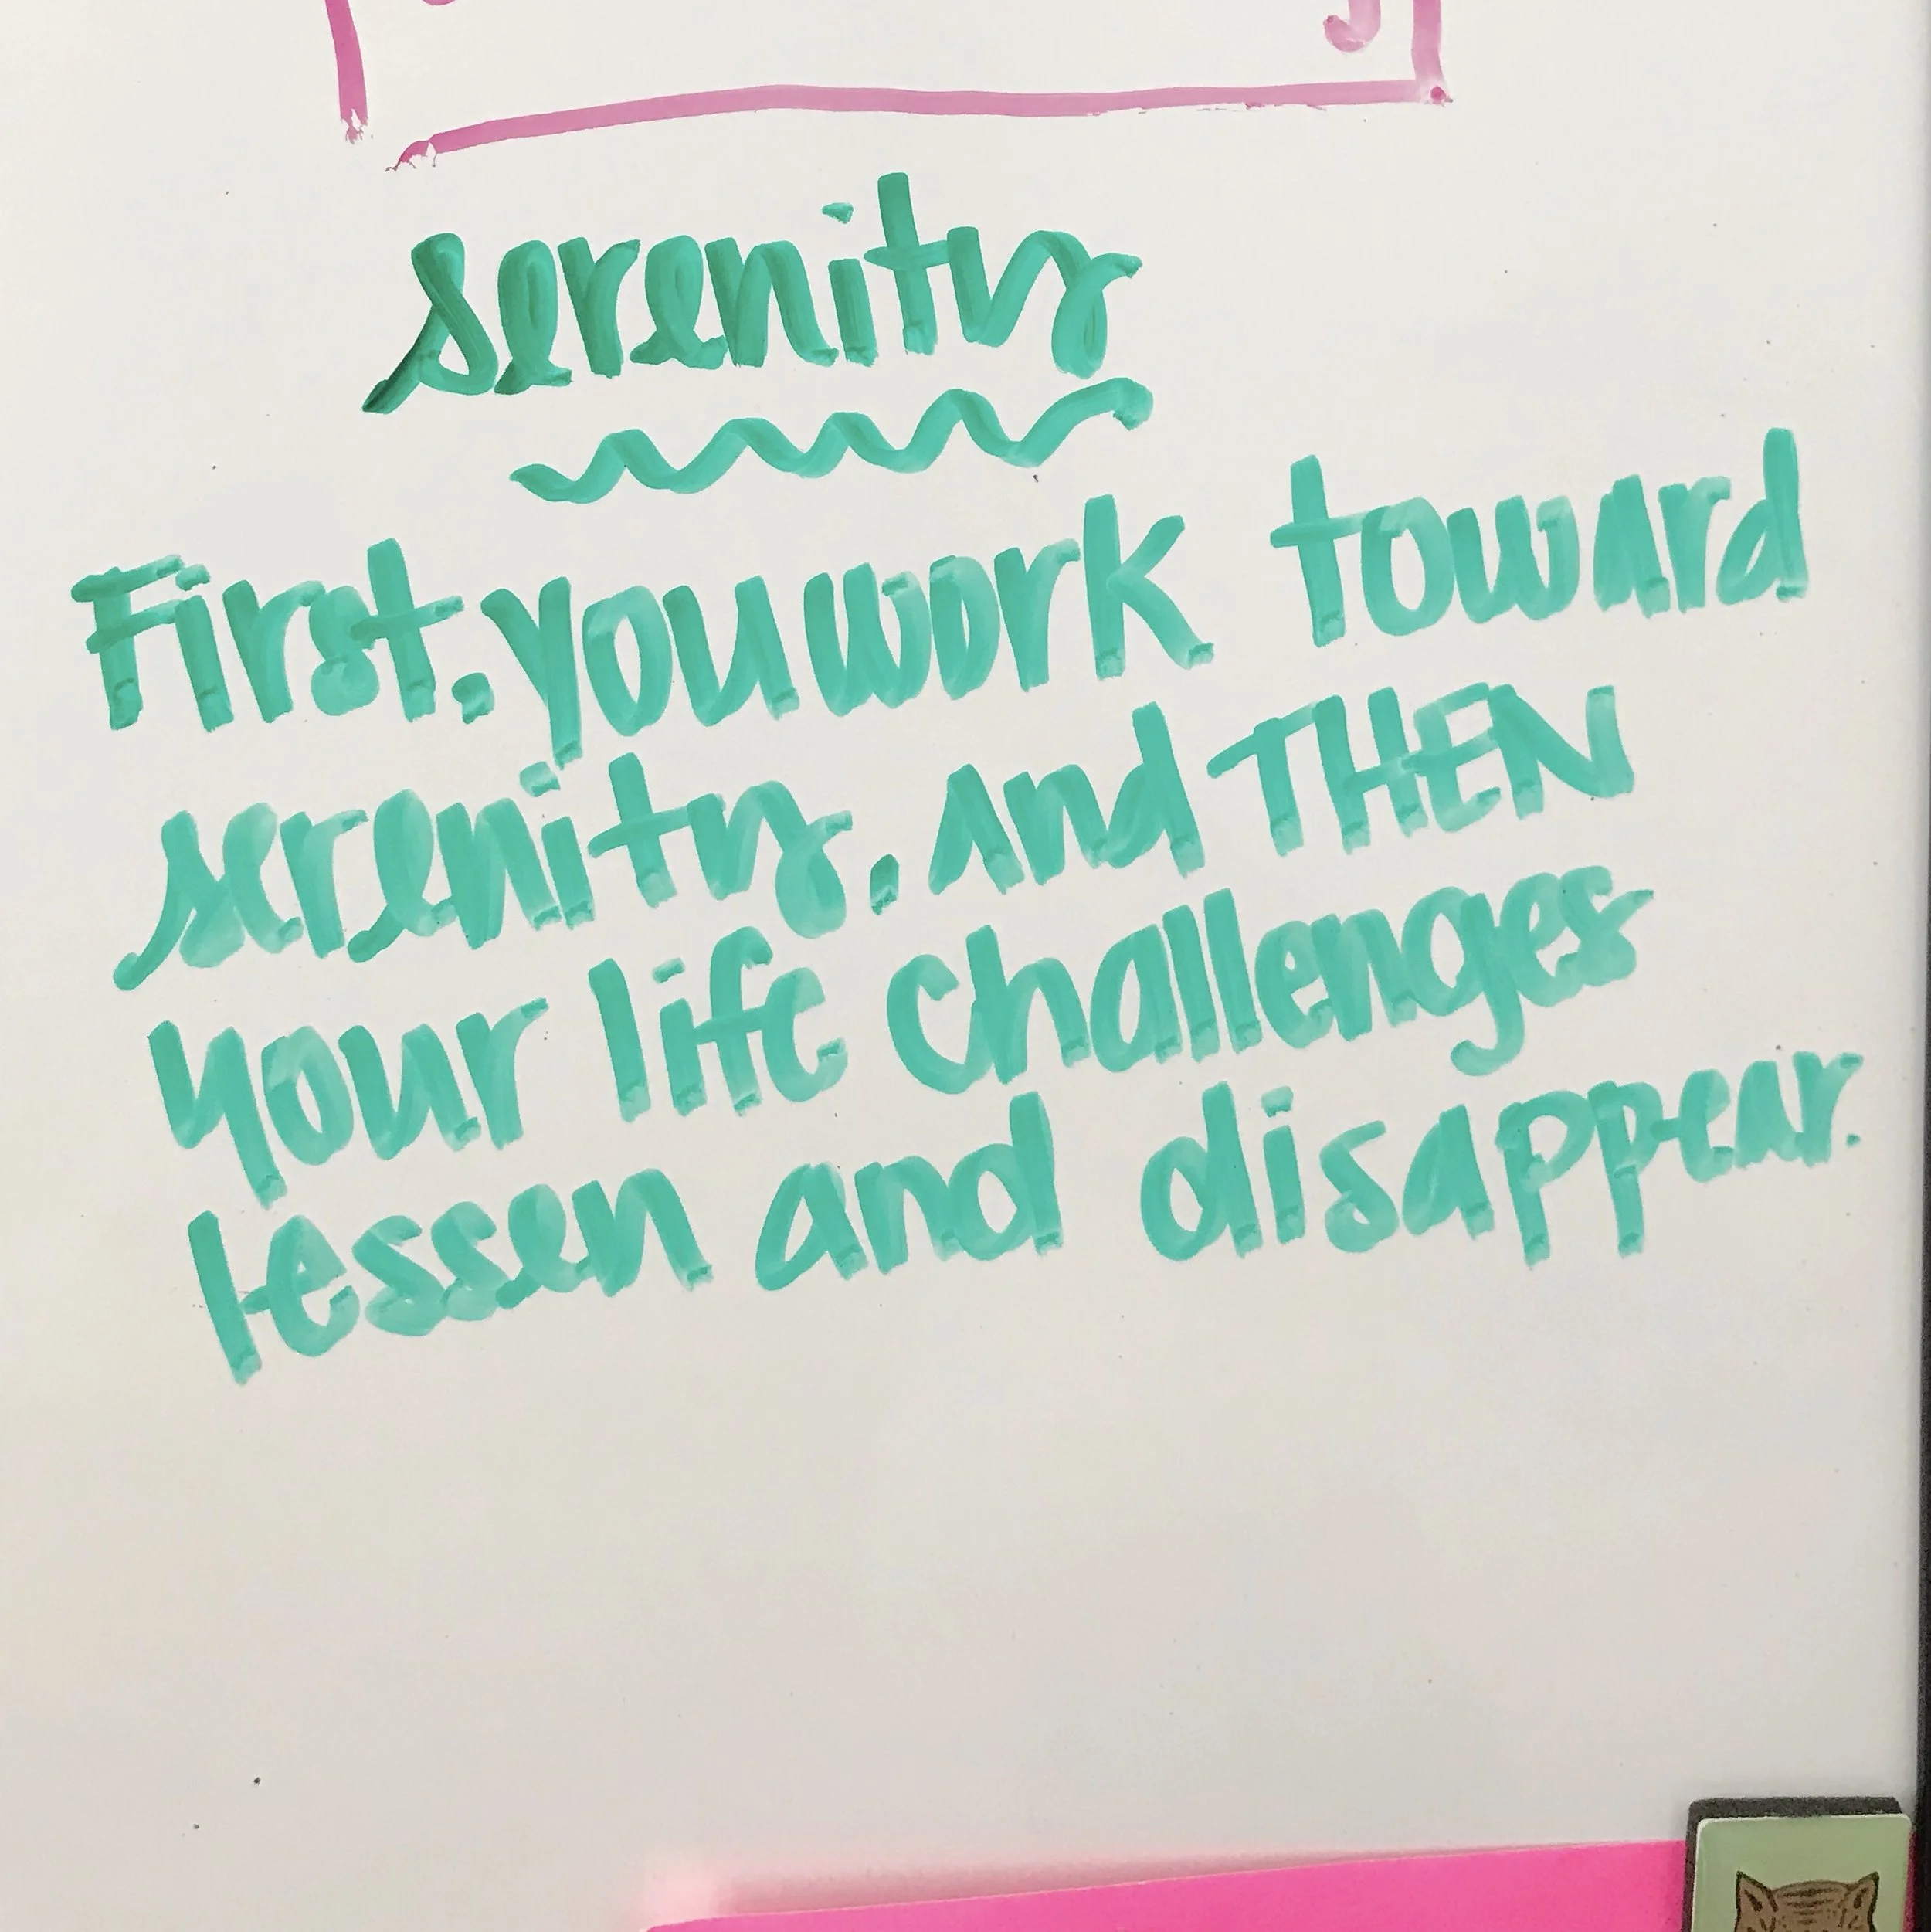 serenity
First, you work toward
serenity, and THEN
your life challenges
lessen and disappear.